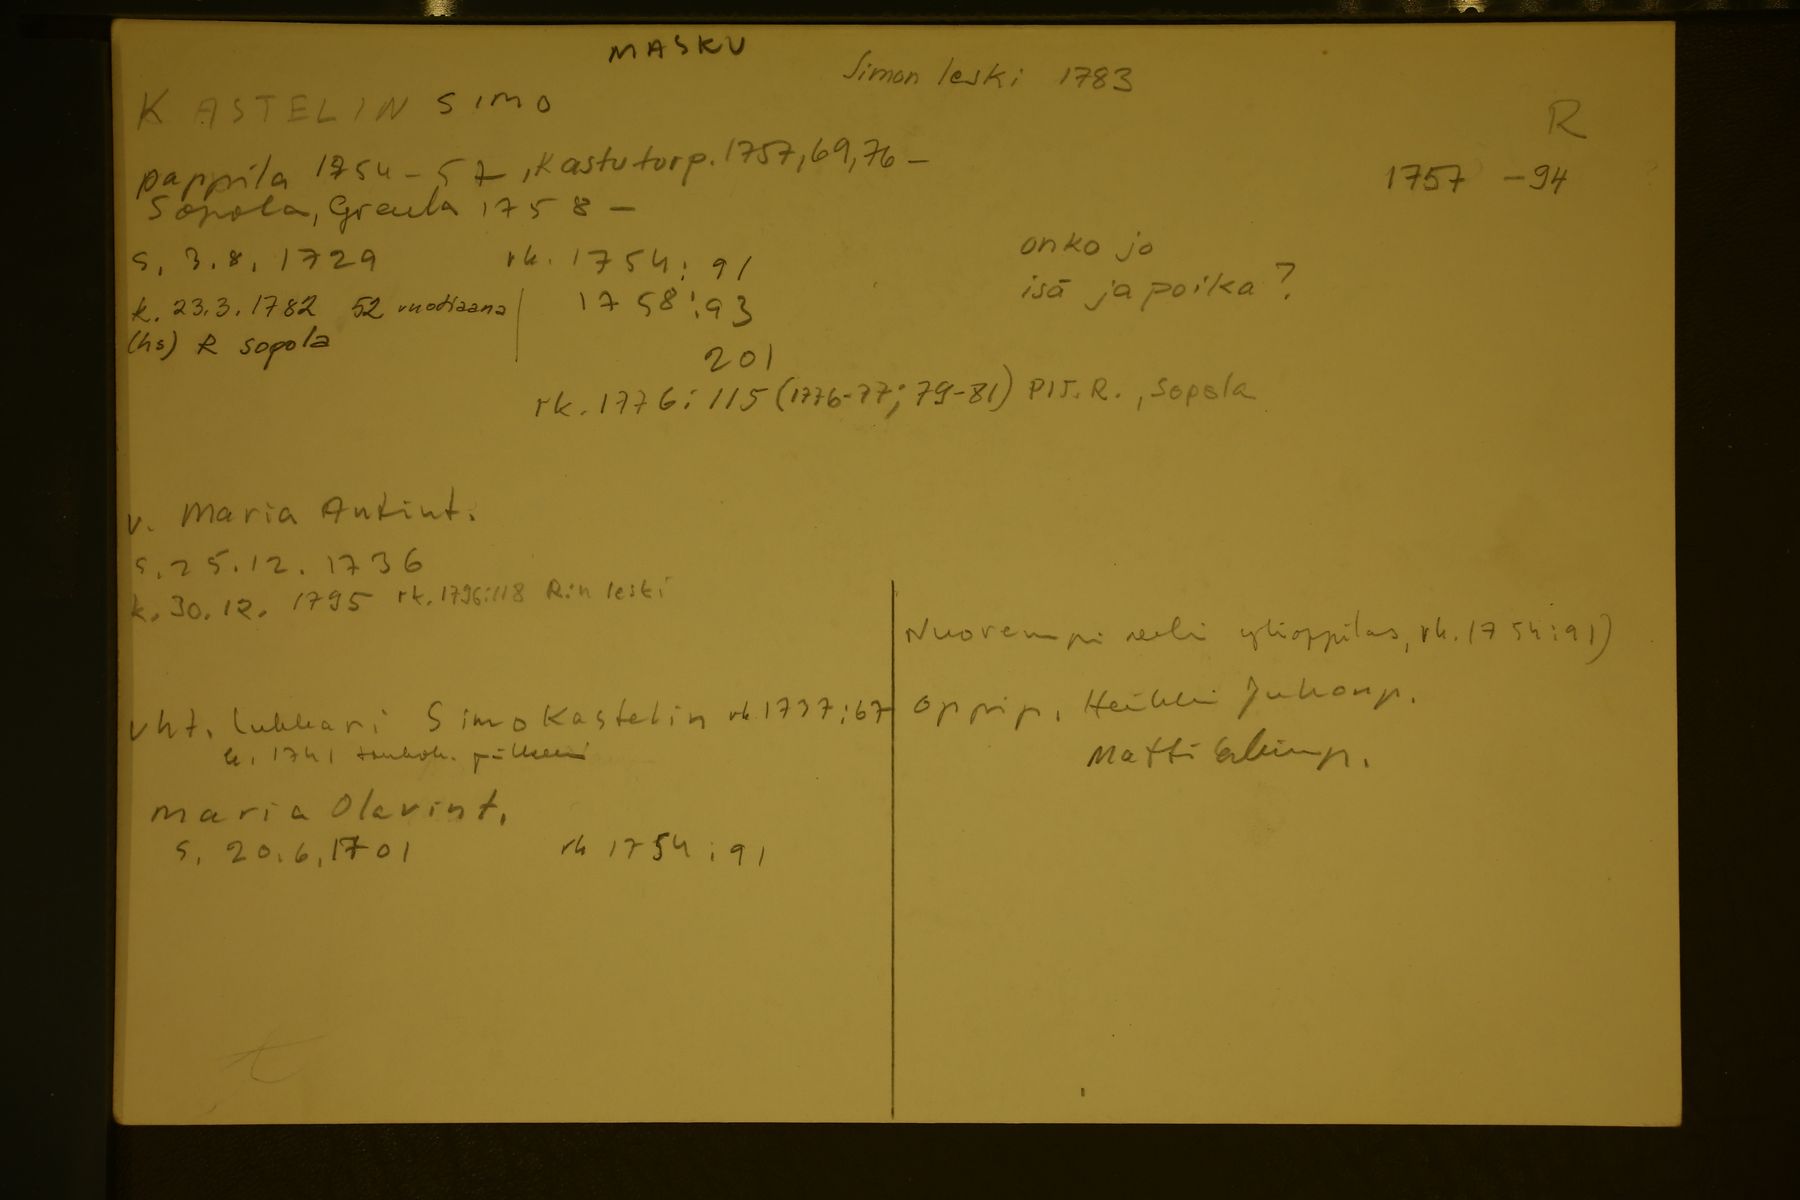 MASKU
Simon leski 1783
KASTELIN SIMO
R
pappila 1754-57, Kastu torp. 1757,69,76-
1757 -94
Sopola, Greula 1758-
s. 3.8.1729 rk. 1754:91
onko jo
k. 23.3.1782 52 vuotiaana 1758:93
isä ja poika?
(hs) R Sopola
201
rk. 1776:115 (1776-77; 79-81) PIT.R., Sopola
v. Maria Antint.
s. 25.12.1736
k. 30.12.1795 rk. 1796:118 R:n leski
Nuorempi veli ylioppilas, rk. 1754:91)
vht. lukkari Simo Kastelin rk. 1737:67
oppip. Heikki Juhonp.
k. 1741 toukok. jälkeen
Matti
Maria Olavint.
s. 20.6.1701 rk 1754:91